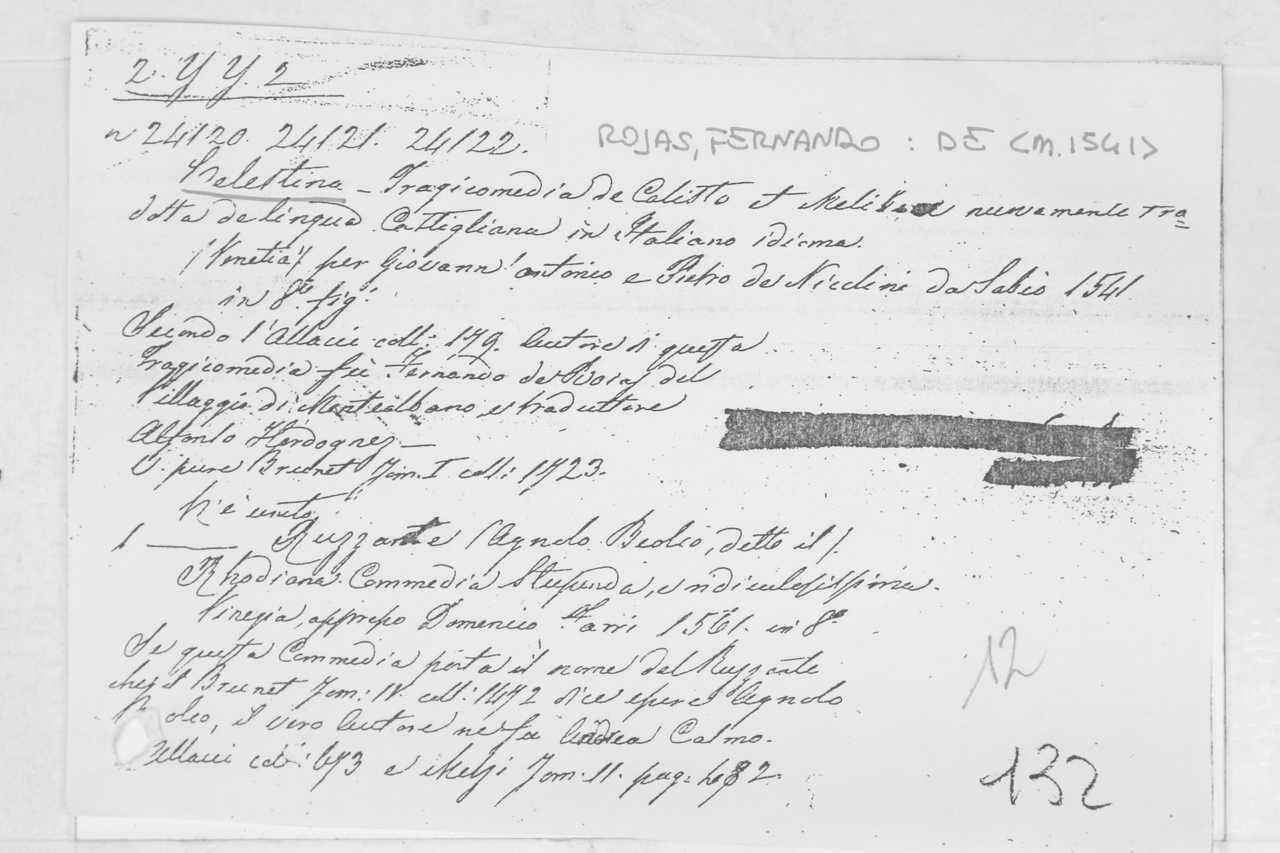 2. Y Y. 2
n 24120. 24121. 24122.
ROJAS, FERNANDO : DE <M. 1541>
Celestina _ Tragicomedia de Calisto et Melibea nuovamente tra=
dotta de lingua Castigliana in Italiano idioma.
(Venetia) per Giovann' antonio e Pietro de Nicolini da Sabio 1541
in 8º fig.
Secondo l'Allacci coll: 179. Autore di questa
Tragicomedia fù Fernando de Roias del
Villaggio di Montealbano e traduttore
Alfonso Hordognez _
V. pure Brunet Tom. I coll: 1723.
V'è unito
1 _____ Ruzzante (Agnolo Beolco, detto il).
Rhodiana. Commedia Stupenda, e ridiculosissima.
Vinegia, appresso Domenico Farri 1561. in 8º
Se questa Commedia porta il nome del Ruzzante
che il Brunet Tom: IV. coll: 1472 dice essere Agnolo
Beolco, il vero Autore ne fù Andrea Calmo.
Allacci coll: 673 e Melzi Tom. II. pag:
12
132